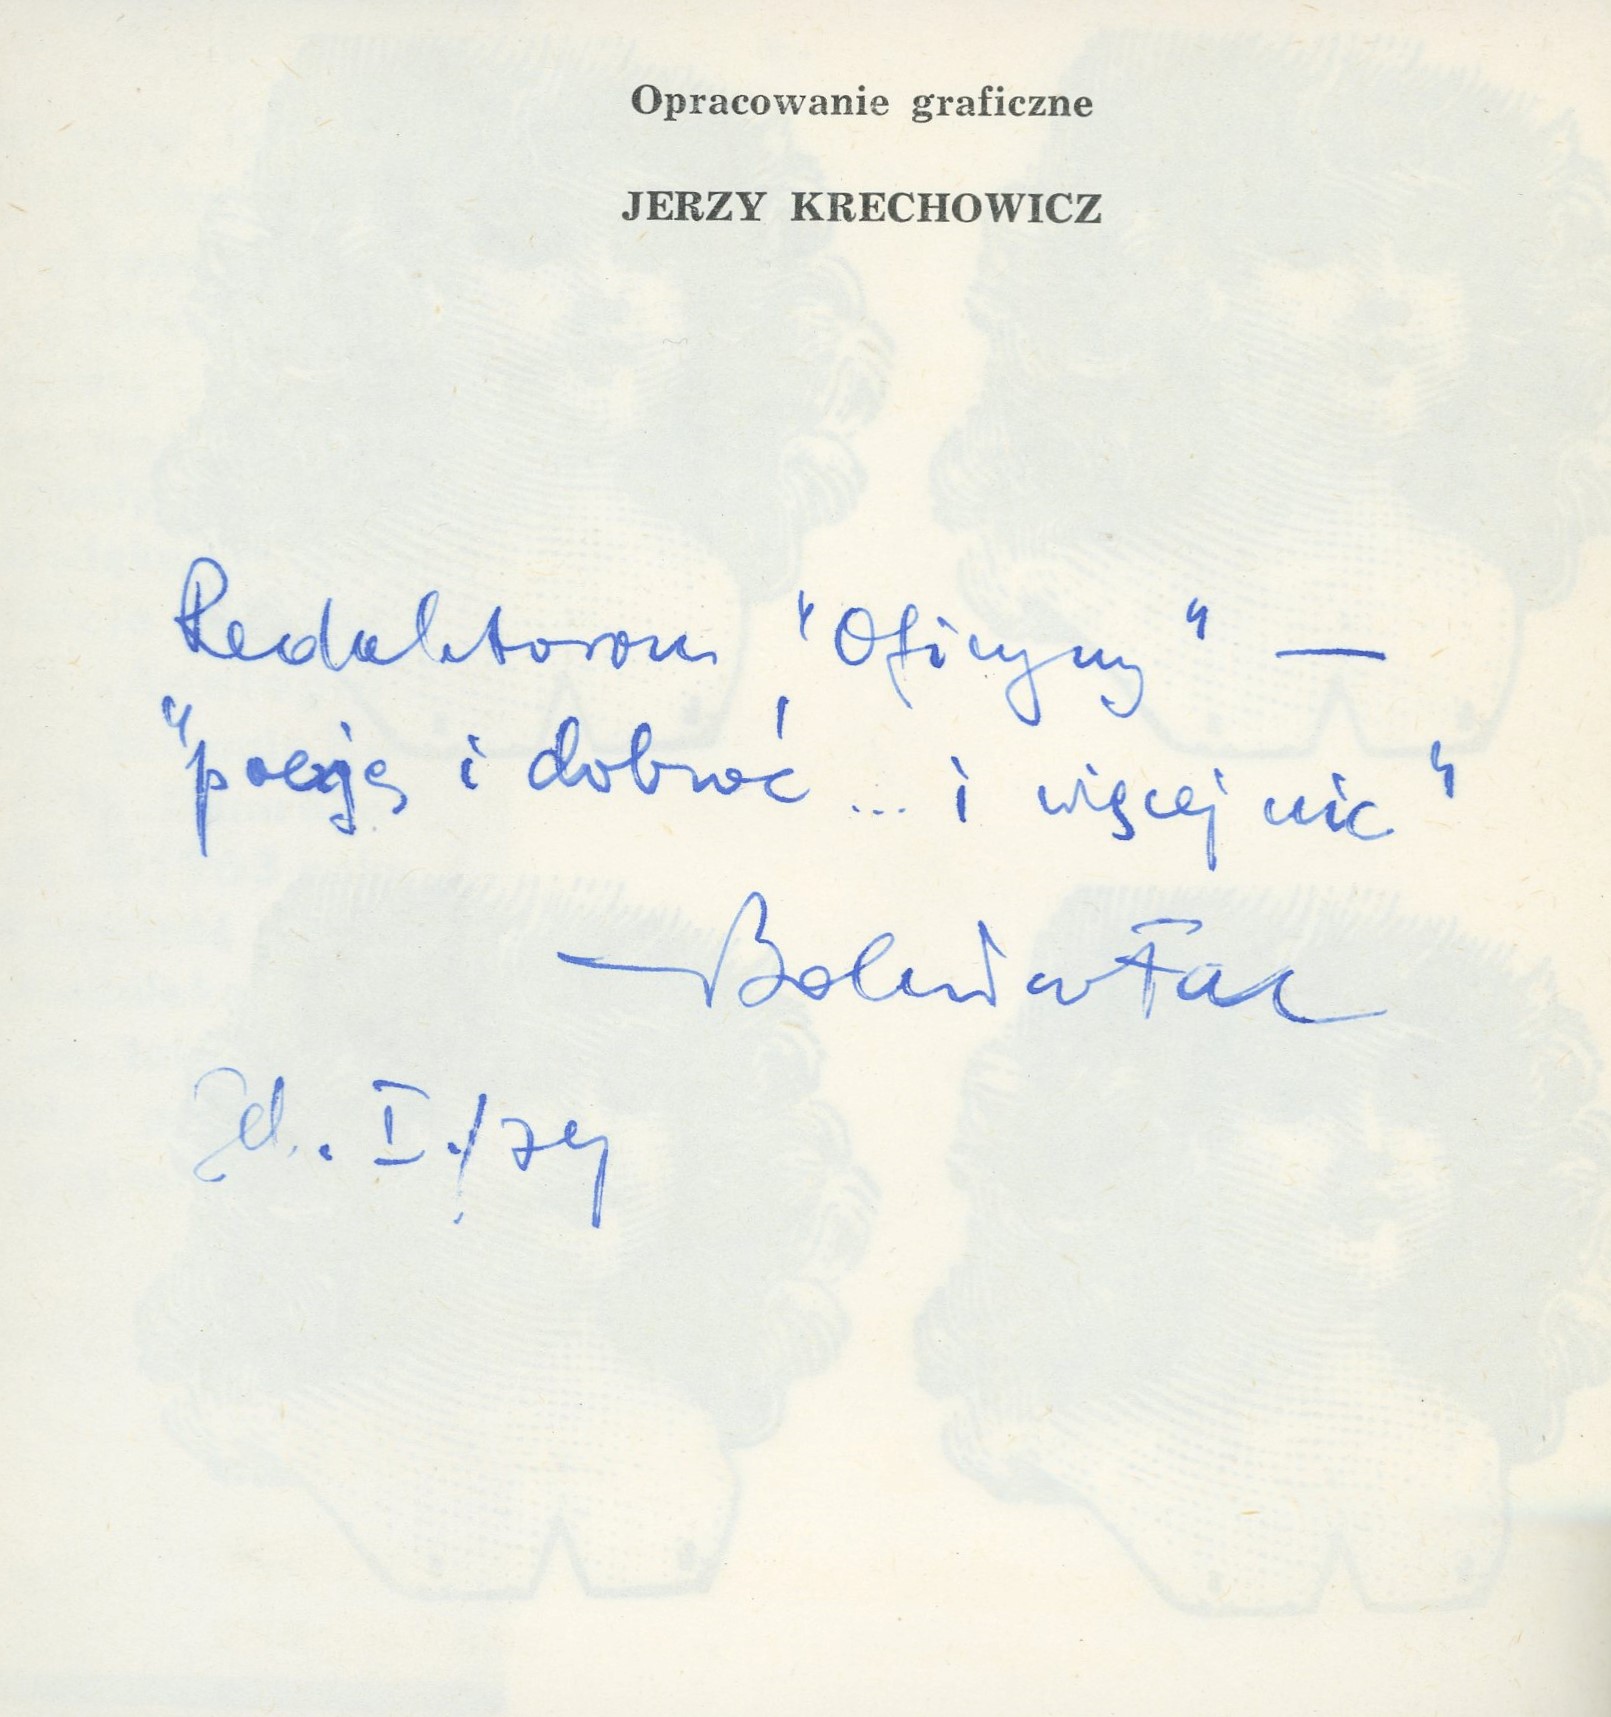 Opracowanie graficzne
JERZY KRECHOWICZ
Redaktorom "Oficyny" —
"poezję i dobroć ... i więcej nic"
— Bolesław Fac
Gd. I./79